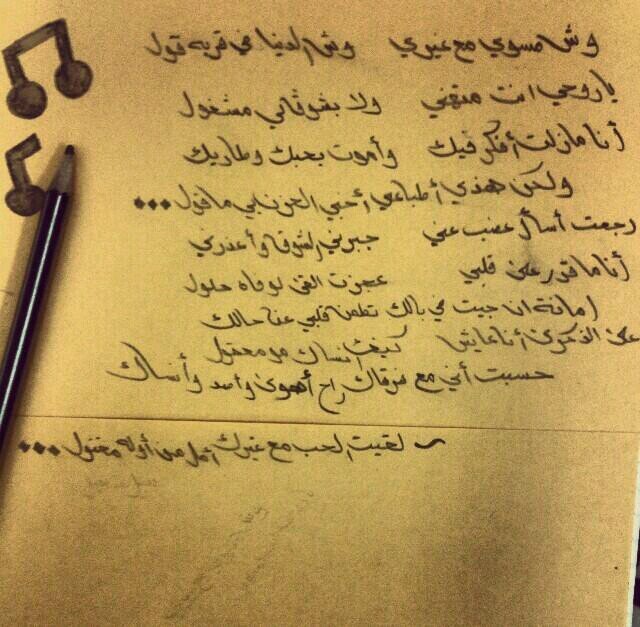 وش مسوي مع غيري   وش الدنيا في قربه قول
ياروحي انت متهني   ولا بشوقاتي مشغول
أنا مازلت أفكر فيك   وأموت بحبك وطاريك
ولكن هذي أطباعي أخبي الحزن بي ماقول...
رجعت أسأل غصب عني   جبرني الشوق وأعذرني
أنا ماقدر على قلبي   عجزت القى لوفاه حلول
امانة ان جيت في بالك تطمن قلبي عنا حالك
على الذكرى أنا عايش   كيف انساك مو معقول
حسبت أني مع فرقاك راح أهون وأصد وأنساك
~ لقيت الحب مع غيرك أمل من أوله مقتول...